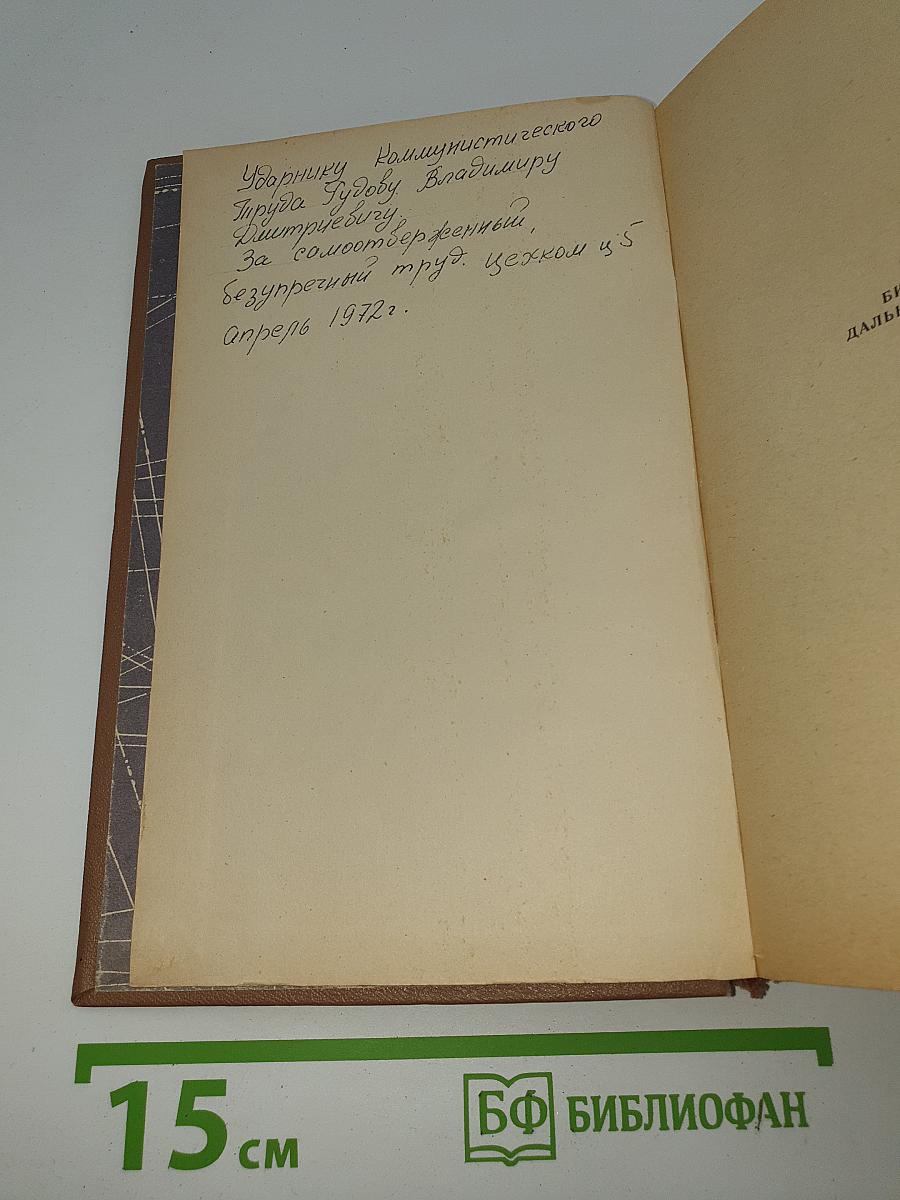 Ударнику Коммунистического
Труда Гудову Владимиру
Дмитриевичу.
За самоотверженный,
безупречный труд. цехком ц 5
апрель 1972 г.
БИ
ДАЛЬН
15 см
БФ БИБЛИОФАН